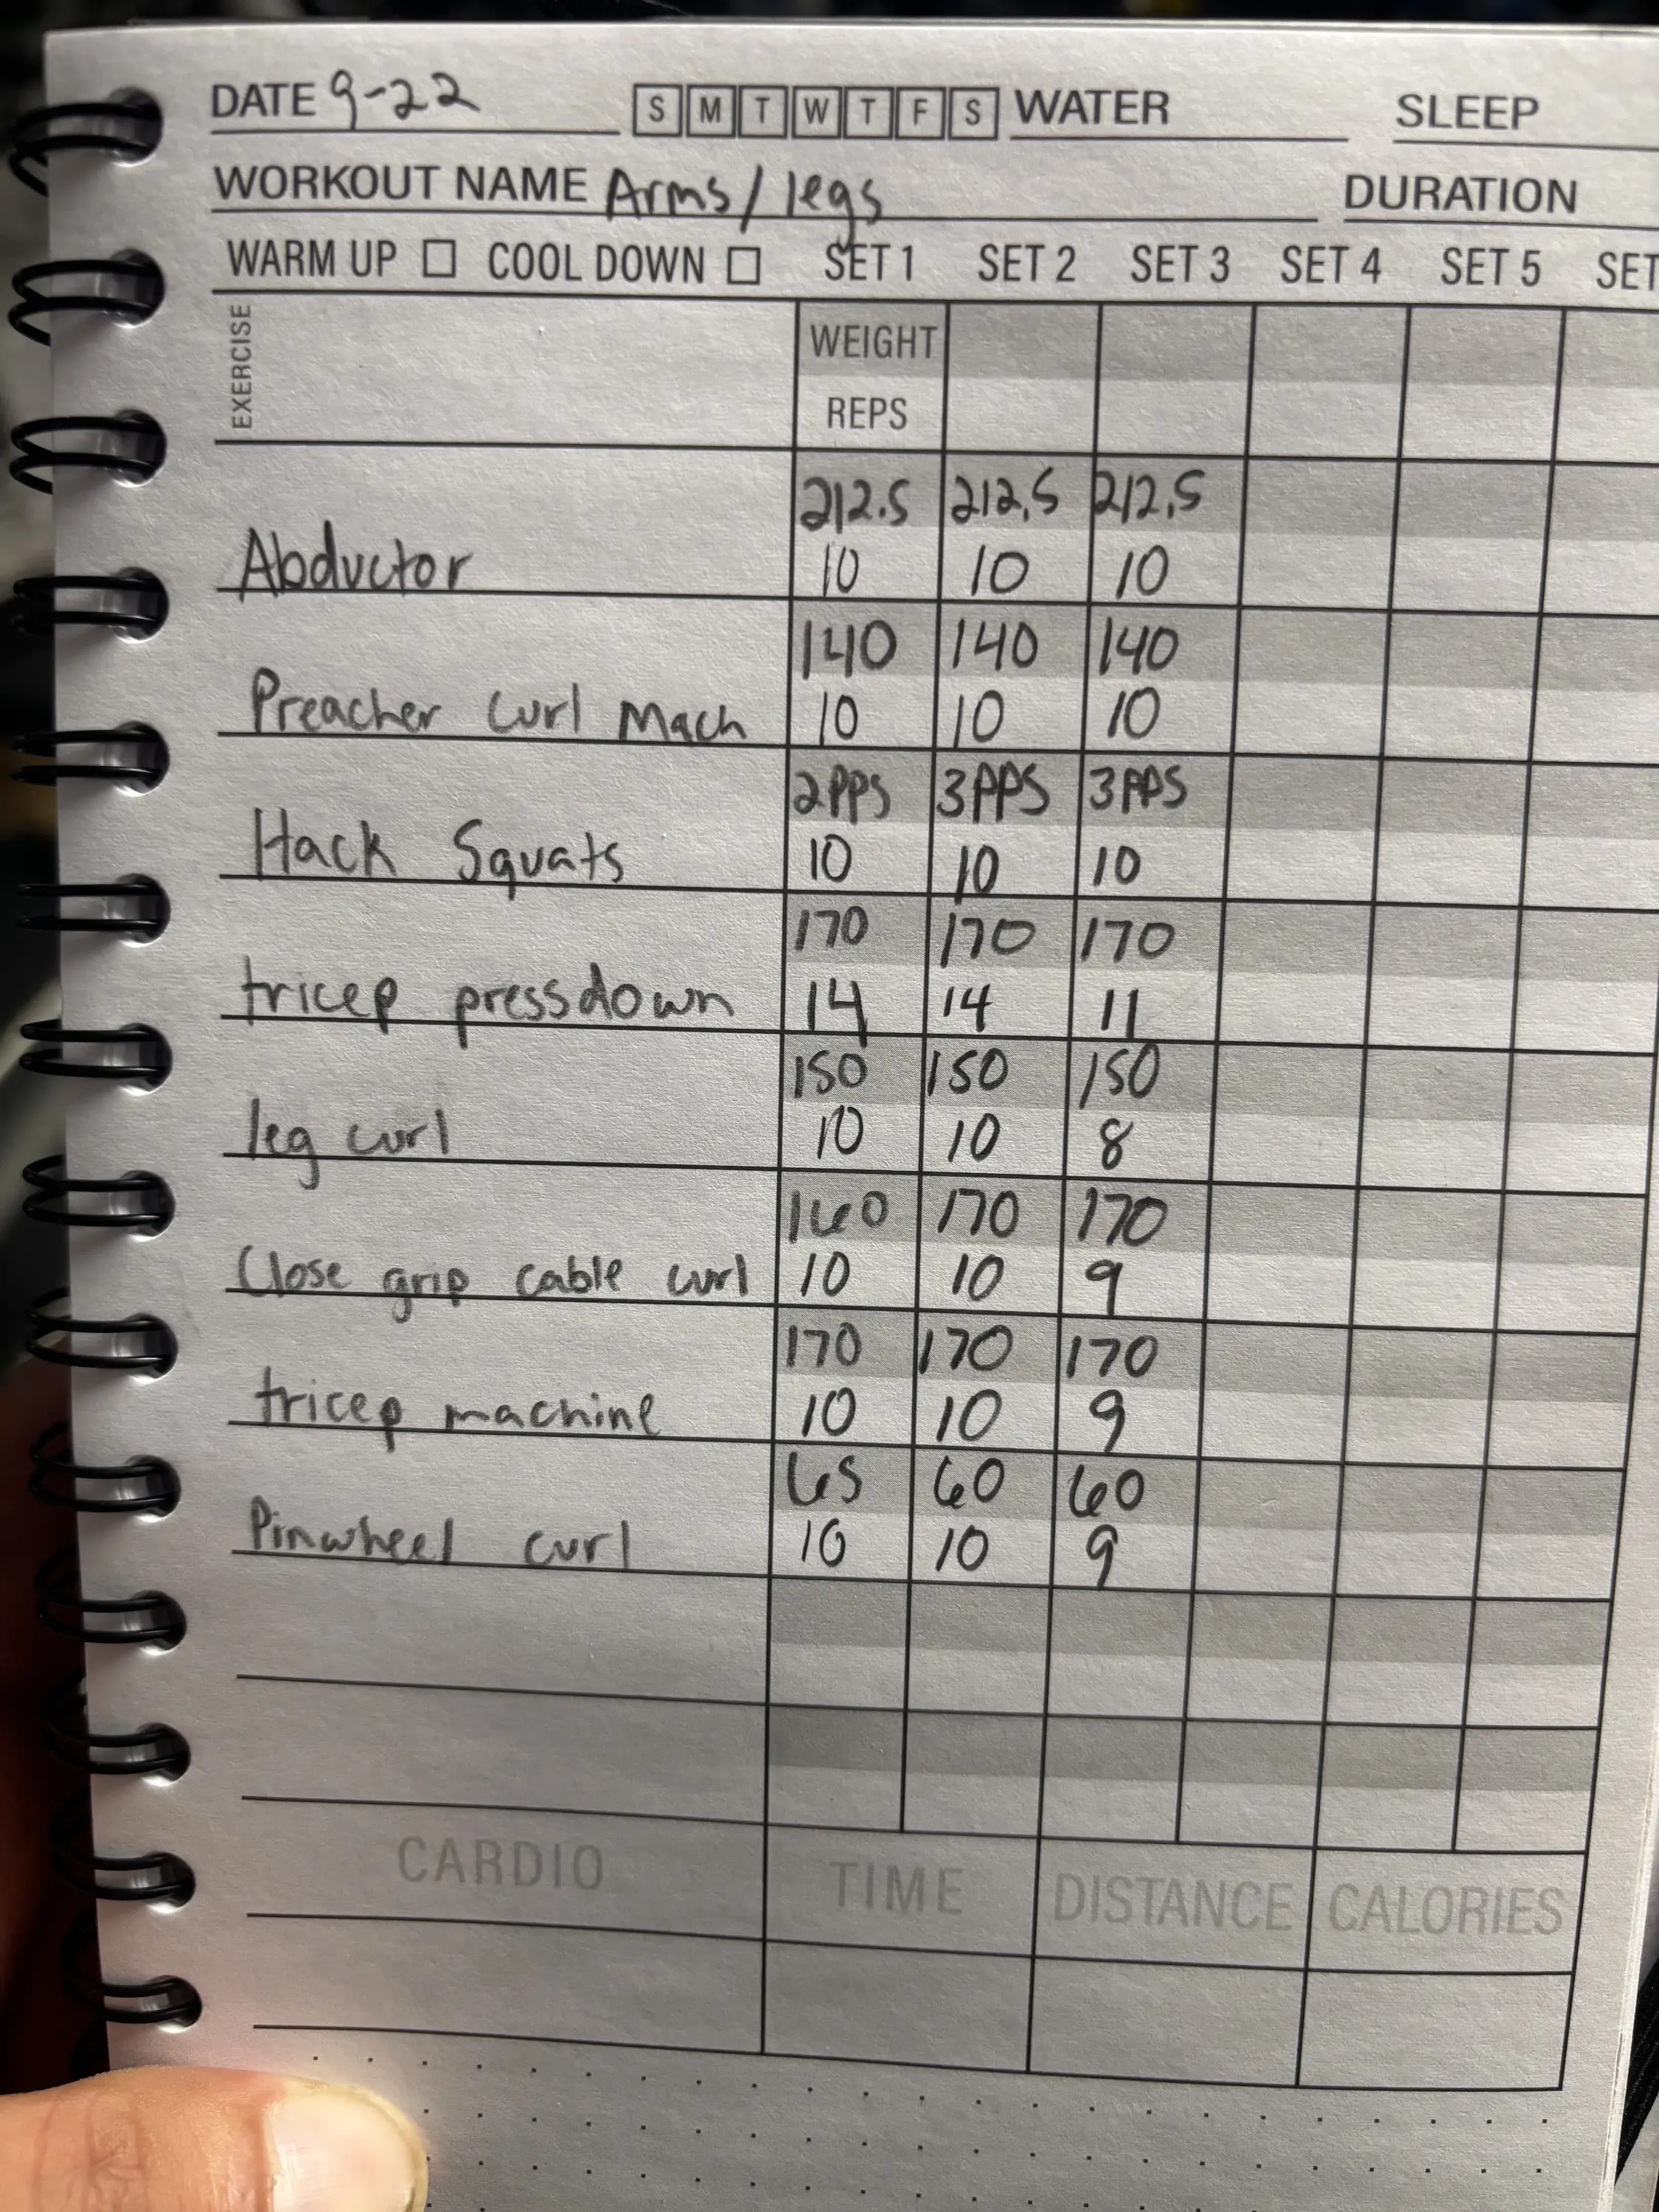 DATE 9-22 S M T W T F S WATER SLEEP
WORKOUT NAME Arms/legs DURATION
WARM UP COOL DOWN SET 1 SET 2 SET 3 SET 4 SET 5 SET
EXERCISE
WEIGHT
REPS
212.5 212.5 212.5
Abductor 10 10 10
140 140 140
Preacher Curl Mach 10 10 10
2PPS 3PPS 3PPS
Hack Squats 10 10 10
170 170 170
tricep pressdown 14 14 11
150 150 150
leg curl 10 10 8
160 170 170
Close grip cable curl 10 10 9
170 170 170
tricep machine 10 10 9
65 60 60
Pinwheel curl 10 10 9
CARDIO TIME DISTANCE CALORIES